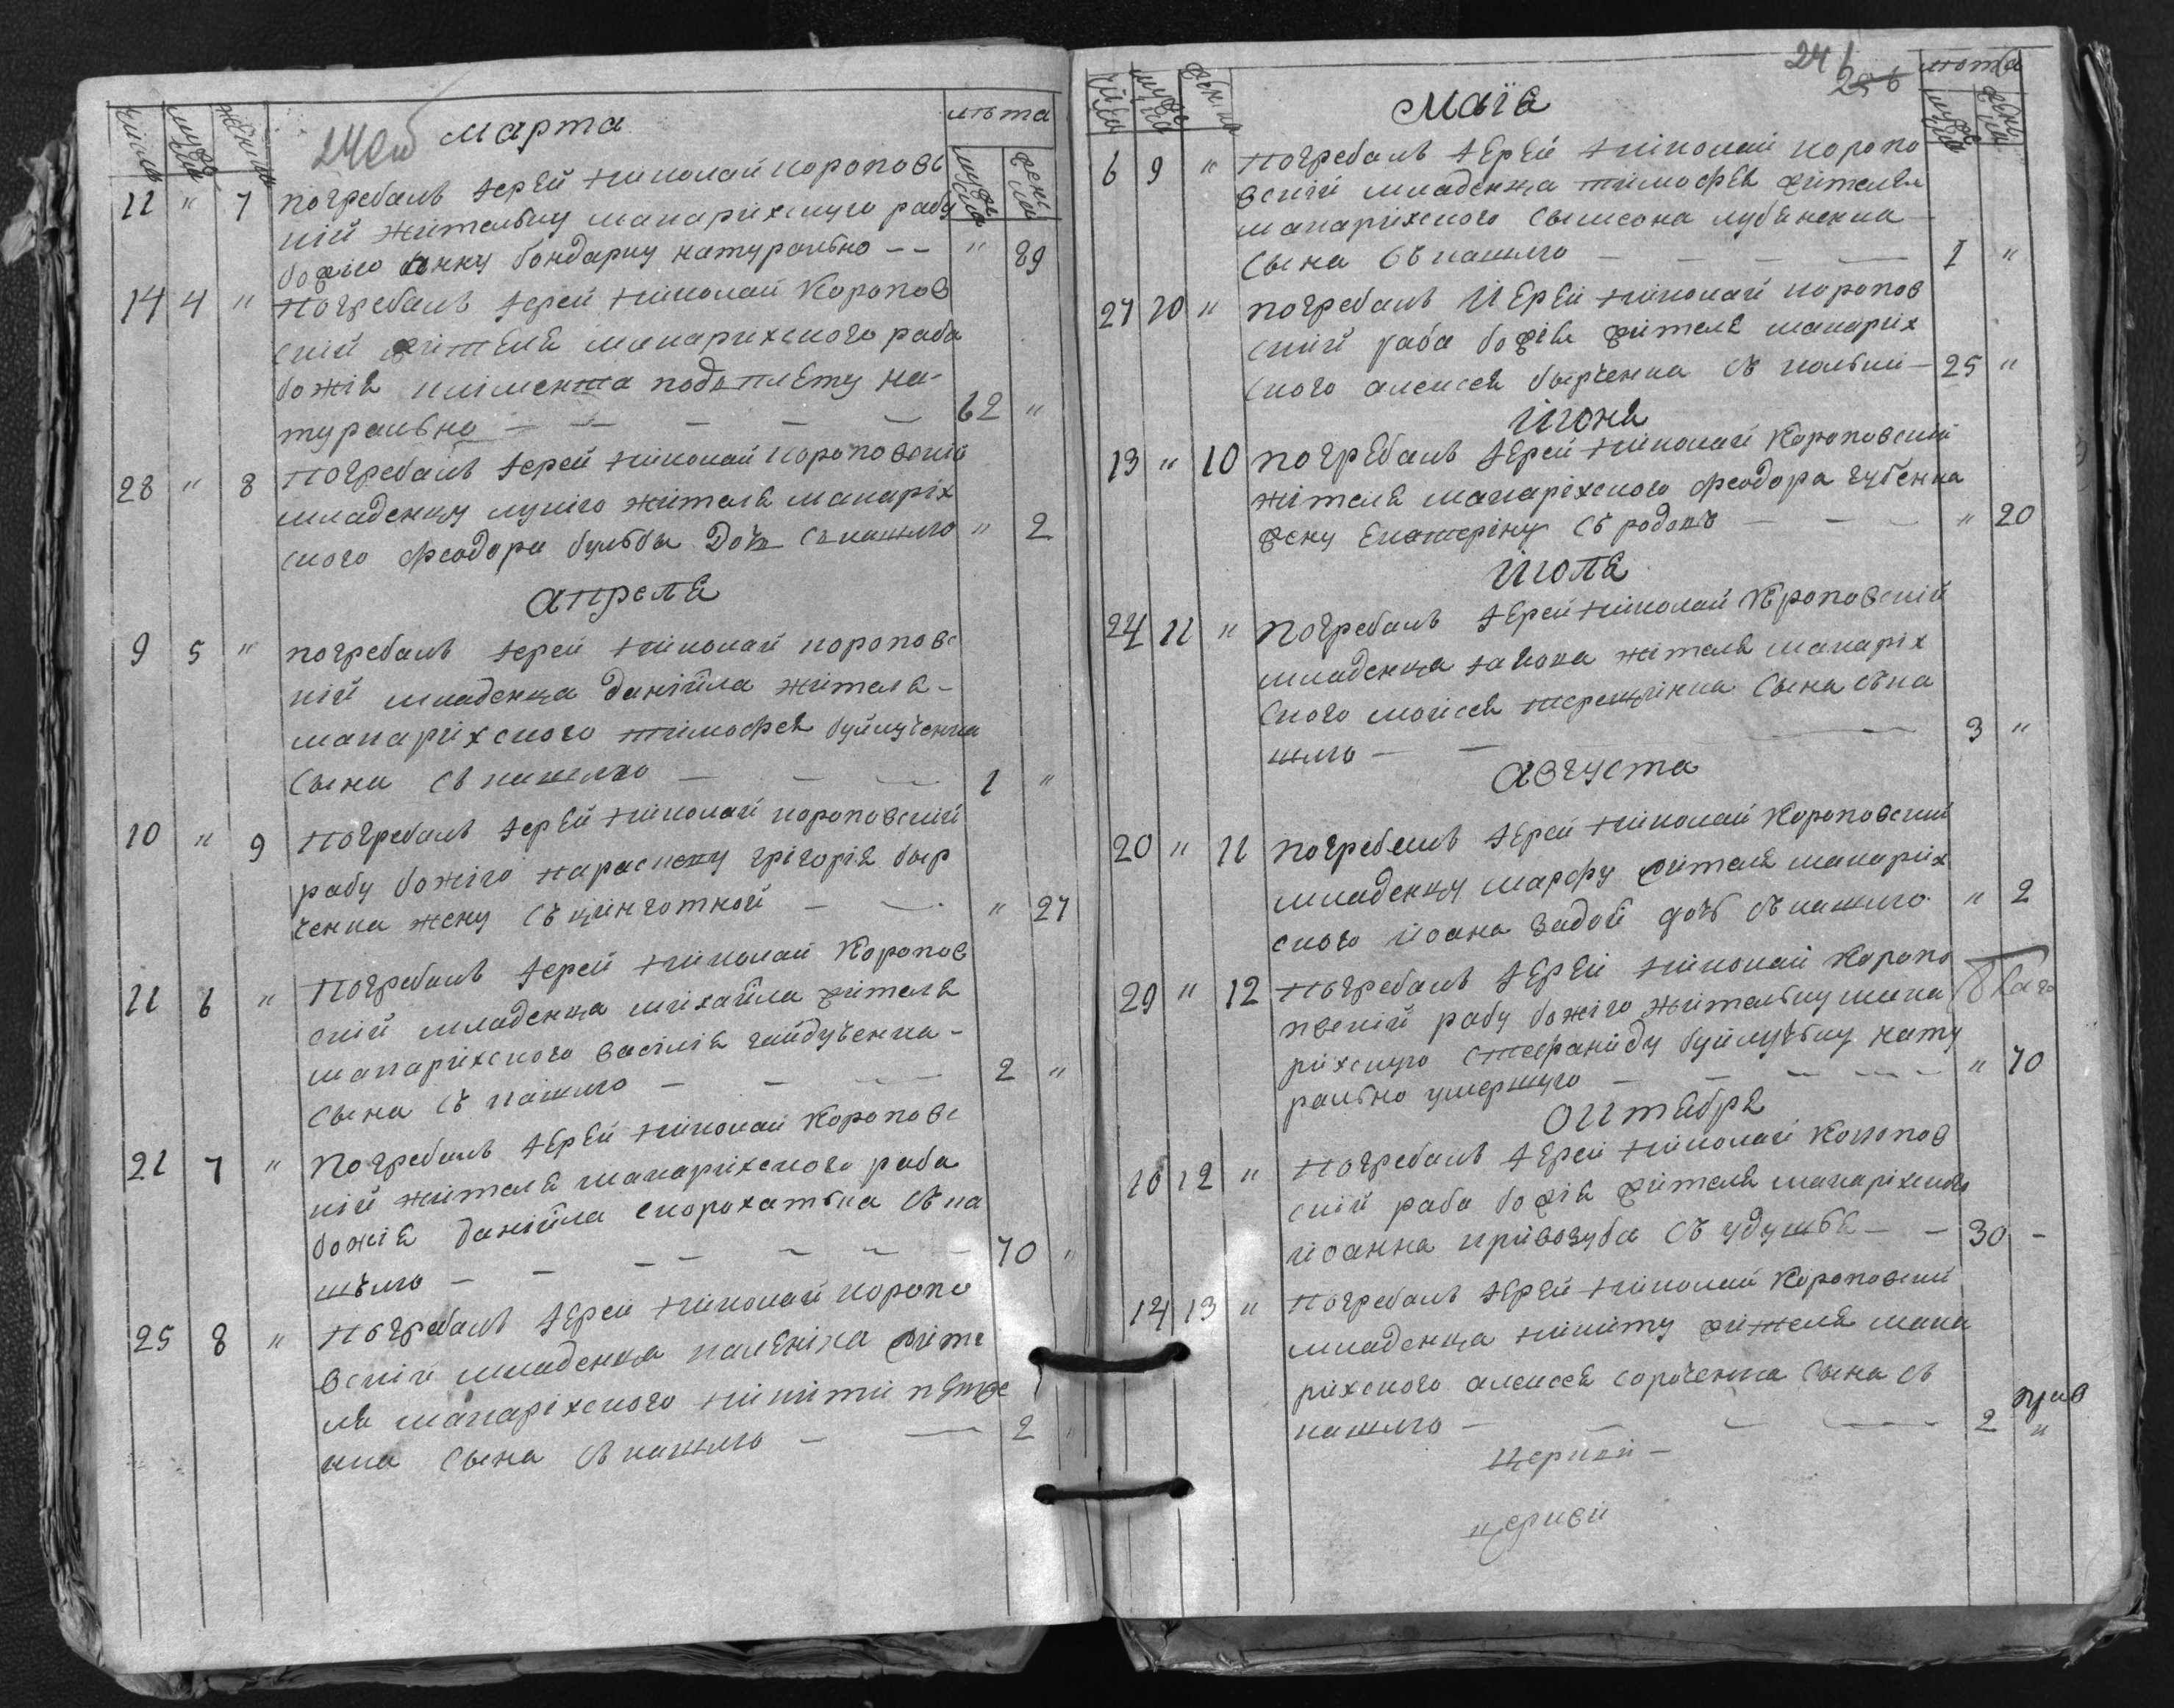 числа мужеска женска
240об марта лѣта
мужеска женска
11 " 7 погребалъ іерей николай короповс
кій жителку макарихскую рабу
божію анну бондарку натурально -- " 89
14 4 " Погребалъ іерей николай Коропов
скій жителя макарихского раба
божія климента подоплету на-
турально - - - - - 62 "
28 " 8 Погребалъ іерей николай короповскій
младенцу лукію жителя макаріх
ского феодора бульбы дочь съ кашлю " 2
апреля
9 5 " погребалъ іерей николай коропов
скій младенца даніила жителя -
макарихского тимофея буйлученка
сына съ кашлю - - - 1 "
10 " 9 Погребалъ іерей николай короповскій
рабу божію параскеву григорія быр
ченка жену съ цинготной - - " 27
11 6 " Погребалъ іерей николай Коропов
скій младенца михайла жителя
макарихского василія гайдученка -
сына съ кашлю - - - - 2 "
21 7 " Погребалъ іерей николай Коропов
скій жителя макарихского раба
божія даніила скорохатька съ ка
шълю - - - - - - - 70 "
25 8 " Погребалъ іерей николай коропо
вскій младенца каленіка жите
ля макаріхского никити
сына съ кашлю - - 2 "
241
маія лѣта
6 9 " Погребалъ іерей николай коропо
вскій младенца тимофея жителя
макаріхского сымеона лубененка
сына съ кашлю - - - 1 "
27 10 " погребалъ іерей николай коропов
скій раба божія жителя макарих
ского алексея бырченка съ - 25 "
іюня
13 " 10 погребалъ іерей николай Короповскій
жителя макаріхского феодора губенка
жену екатеріну съ родовъ - - - " 20
іюля
24 11 " Погребалъ іерей николай Короповскій
младенца іакова жителя макаріх
ского моисея терещінка сына съ ка
шлю - - - 3 "
августа
20 " 11 погребалъ іерей николай Короповскій
младенцу марфу жителя макаріх
ского іоана задой дочь съ кашлю " 2
29 " 12 Погребалъ іерей николай Коропо
вскій рабу божію жителку мака
рихскую стефаниду буйлучку нату
рально умершую - - - - - " 70
октября
10 12 " Погребалъ іерей николай Коропов
скій раба божія жителя макаріхского
іоанна кривозуба съ удушья - - 30 -
14 13 " Погребалъ іерей николай Короповскій
младенца никиту жителя мака
рихского алексея сорученка сына съ
кашлю - - - - 2 "
церкви -
церкви